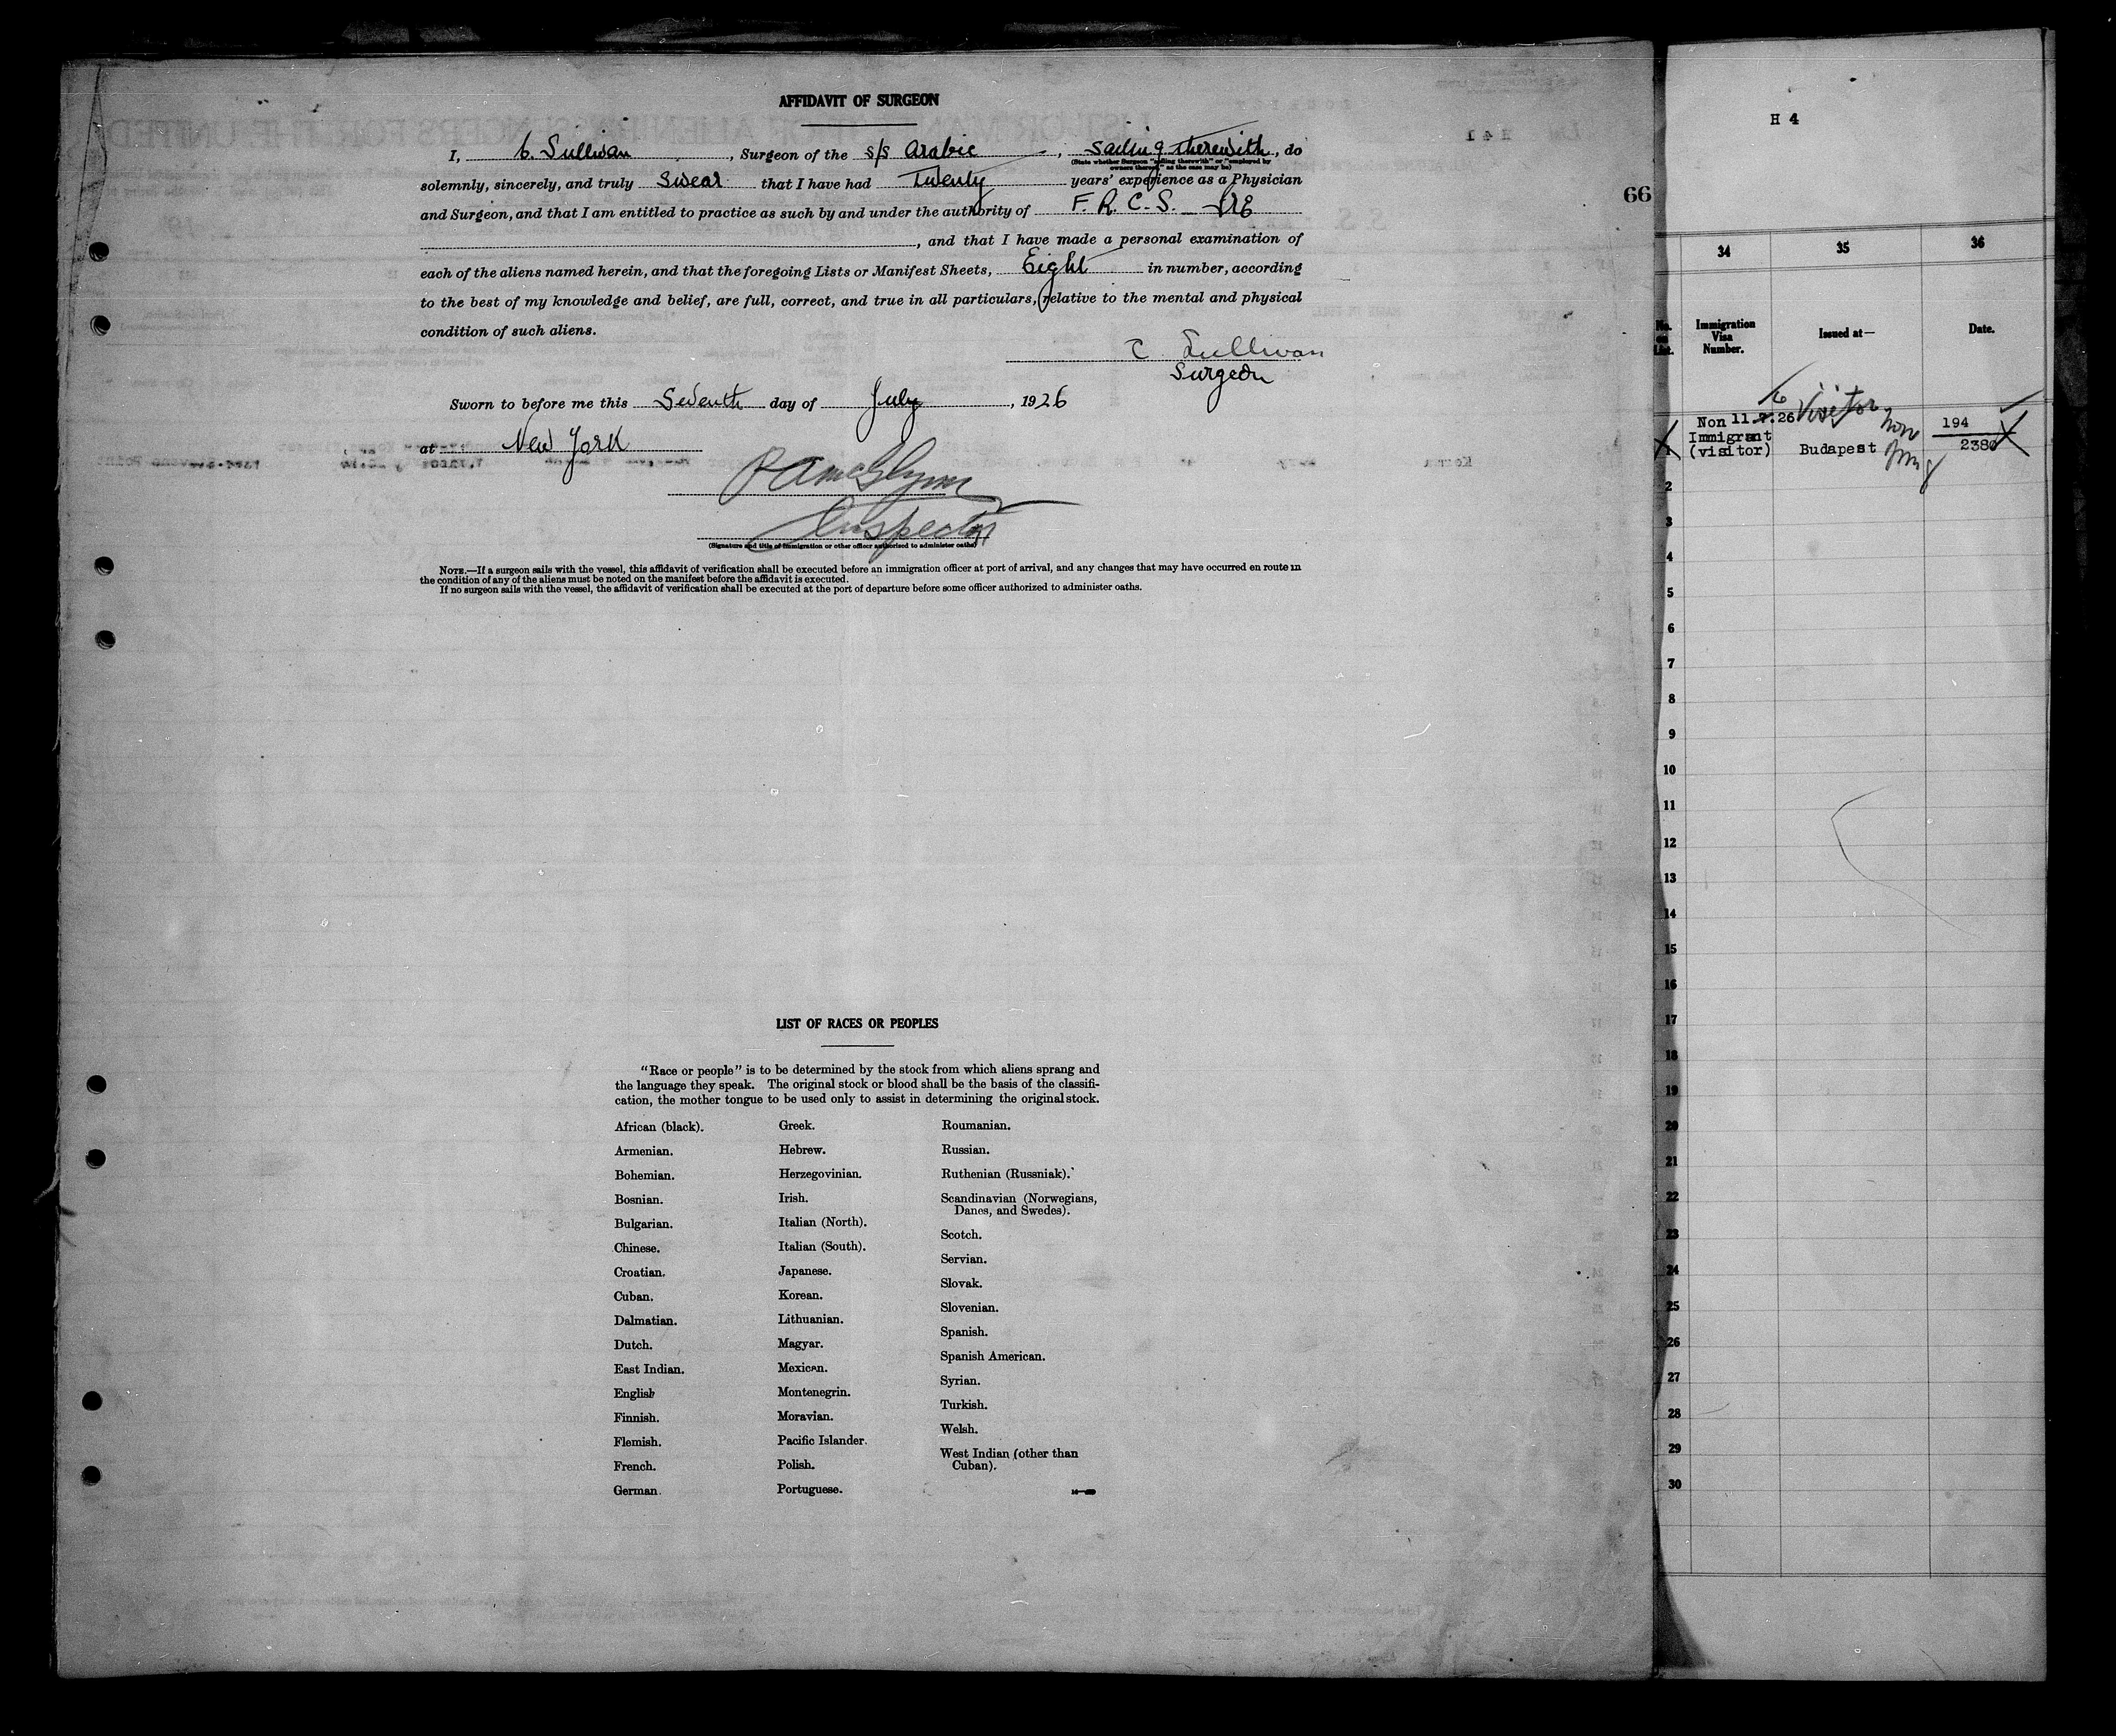 AFFIDAVIT OF SURGEON
I, C. Sullivan, Surgeon of the s/s Arabic, Sailing therewith, do
(State whether Surgeon "sailing therewith" or "employed by
owners thereof," as the case may be)
solemnly, sincerely, and truly Swear that I have had Twenty years' experience as a Physician
and Surgeon, and that I am entitled to practice as such by and under the authority of F. R. C. S.
, and that I have made a personal examination of
each of the aliens named herein, and that the foregoing Lists or Manifest Sheets, Eight in number, according
to the best of my knowledge and belief, are full, correct, and true in all particulars, relative to the mental and physical
condition of such aliens.
C Sullivan
Surgeon
Sworn to before me this Seventh day of July, 1926
at New York
Inspector
(Signature and title of immigration or other officer authorized to administer oaths)
NOTE.—If a surgeon sails with the vessel, this affidavit of verification shall be executed before an immigration officer at port of arrival, and any changes that may have occurred en route in
the condition of any of the aliens must be noted on the manifest before the affidavit is executed.
If no surgeon sails with the vessel, the affidavit of verification shall be executed at the port of departure before some officer authorized to administer oaths.
LIST OF RACES OR PEOPLES
"Race or people" is to be determined by the stock from which aliens sprang and
the language they speak. The original stock or blood shall be the basis of the classifi-
cation, the mother tongue to be used only to assist in determining the original stock.
African (black).
Armenian.
Bohemian.
Bosnian.
Bulgarian.
Chinese.
Croatian.
Cuban.
Dalmatian.
Dutch.
East Indian.
English
Finnish.
Flemish.
French.
German.
Greek.
Hebrew.
Herzegovinian.
Irish.
Italian (North).
Italian (South).
Japanese.
Korean.
Lithuanian.
Magyar.
Mexican.
Montenegrin.
Moravian.
Pacific Islander.
Polish.
Portuguese.
Roumanian.
Russian.
Ruthenian (Russniak).
Scandinavian (Norwegians,
Danes, and Swedes).
Scotch.
Servian.
Slovak.
Slovenian.
Spanish.
Spanish American.
Syrian.
Turkish.
Welsh.
West Indian (other than
Cuban).
66
H 4
34
35
36
No.
on
List.
Immigration
Visa
Number.
Issued at—
Date.
6 Visitor
Non 11.7.26
194
Immigrant
1 (visitor) Budapest 2380
2
3
4
5
6
7
8
9
10
11
12
13
14
15
16
17
18
19
20
21
22
23
24
25
26
27
28
29
30